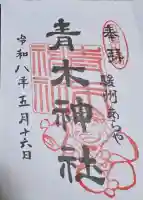 奉拝
駿州
青木神社
令和八年五月十六日